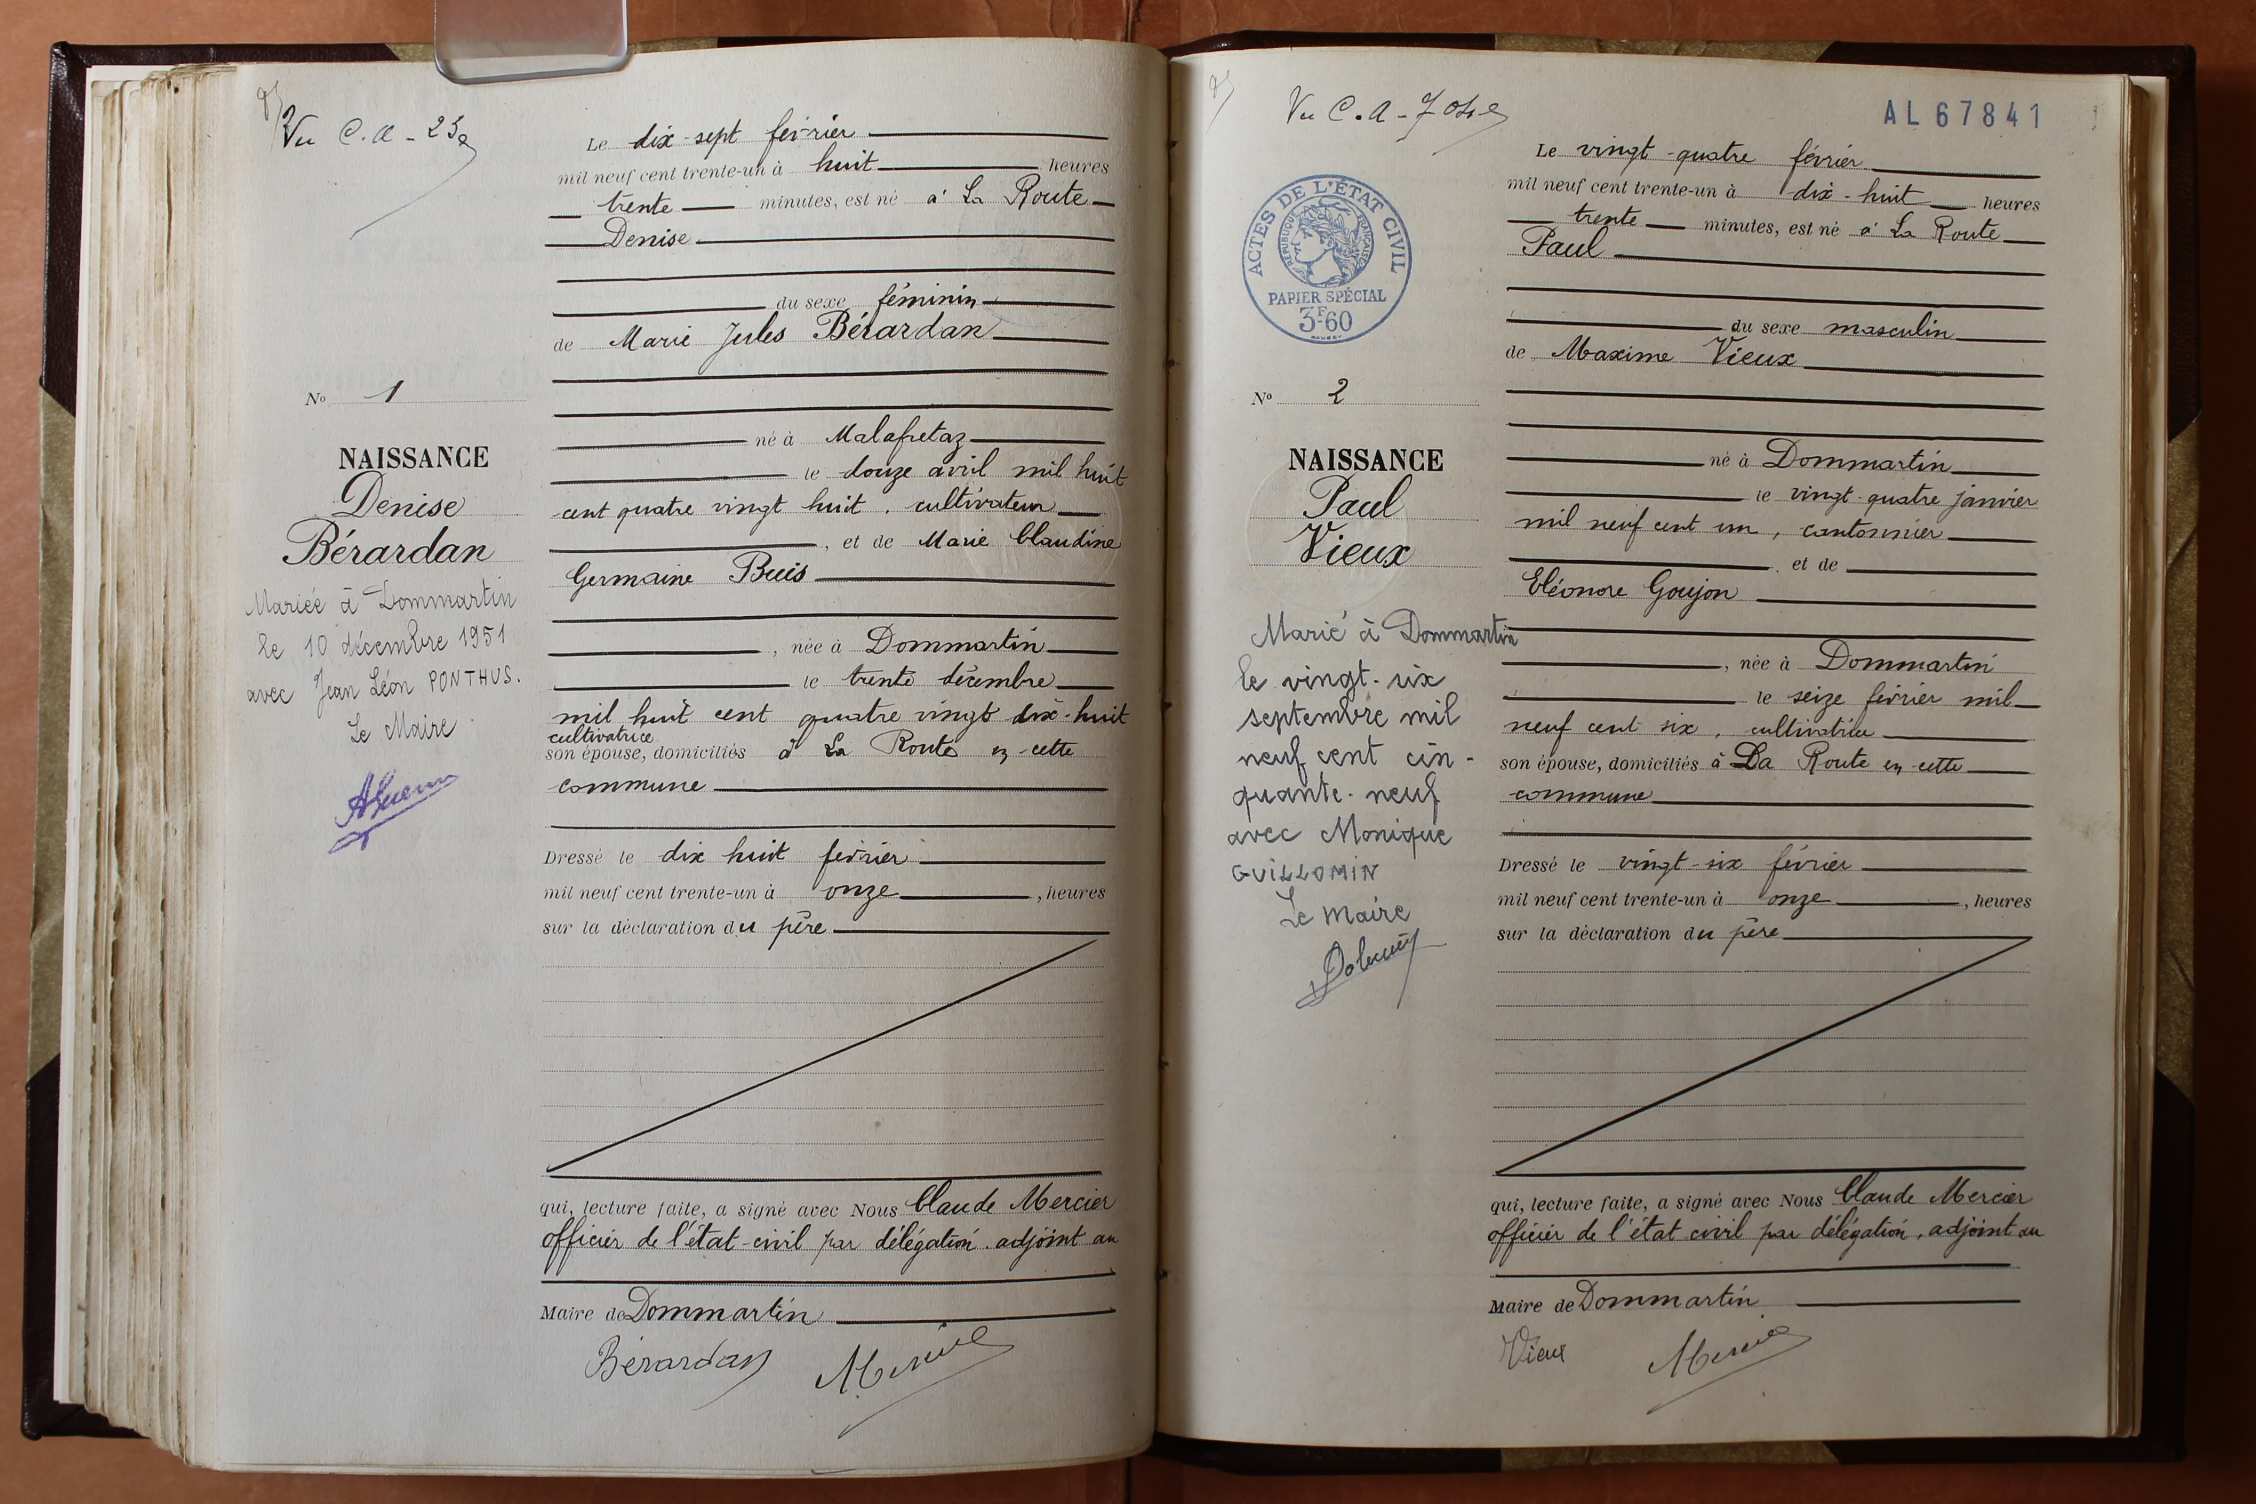 Vu C.A - 23e
Le dix-sept février
mil neuf cent trente-un à huit heures
trente minutes, est né à La Route
Denise
du sexe féminin
de Marie Jules Bérardan
No 1
né à Malafretaz
NAISSANCE
Denise
Bérardan
le douze avril mil huit
cent quatre vingt huit, cultivateur
, et de Marie Claudine
Germaine Buis
Mariée à Dommartin
le 10 décembre 1951
avec Jean Léon PONTHUS.
Le Maire
, née à Dommartin
le trente décembre
mil huit cent quatre vingt dix-huit
cultivatrice
son épouse, domiciliés à La Route en cette
commune
Dressé le dix huit février
mil neuf cent trente-un à onze, heures
sur la déclaration du père
qui, lecture faite, a signé avec Nous Claude Mercier
officier de l'état-civil par délégation, adjoint au
Maire de Dommartin
Bérardan Mercier
Vu C.A -
AL 67841
Le vingt-quatre février
mil neuf cent trente-un à dix-huit heures
trente minutes, est né à La Route
Paul
ACTES DE L'ÉTAT CIVIL
RÉPUBLIQUE FRANÇAISE
PAPIER SPÉCIAL
3F60
du sexe masculin
de Maxime Vieux
No 2
né à Dommartin
NAISSANCE
Paul
Vieux
le vingt-quatre janvier
mil neuf cent un, cantonnier
et de
Eléonore Goujon
Marié à Dommartin
le vingt-six
septembre mil
neuf cent cin-
quante-neuf
avec Monique
GUILLOMIN
Le Maire
, née à Dommartin
le seize février mil
neuf cent six, cultivatrice
son épouse, domiciliés à La Route en cette
commune
Dressé le vingt-six février
mil neuf cent trente-un à onze, heures
sur la déclaration du père
qui, lecture faite, a signé avec Nous Claude Mercier
officier de l'état civil par délégation, adjoint au
Maire de Dommartin
Vieux Mercier